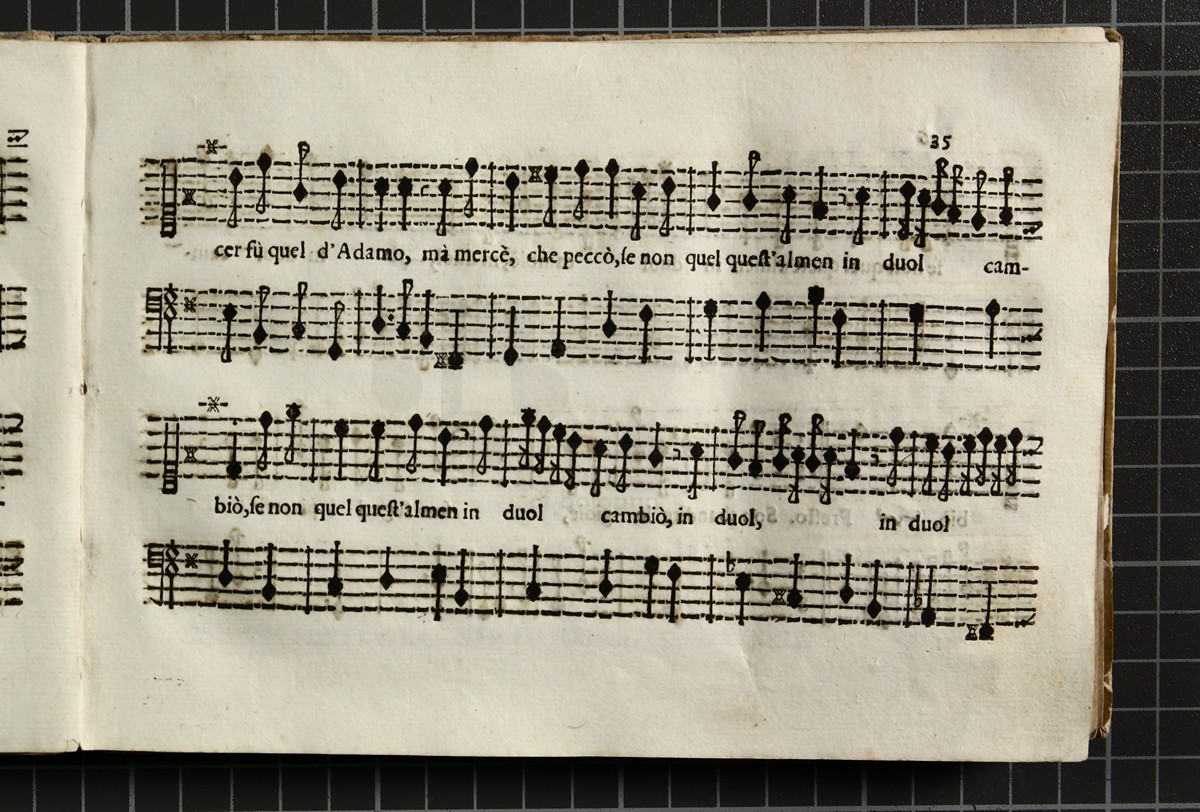 35
cer fù quel d'Adamo, mà mercè, che peccò,ſe non quel queſt'almen in duol cam-
biò,ſe non quel queſt'almen in duol cambiò, in duol, in duol